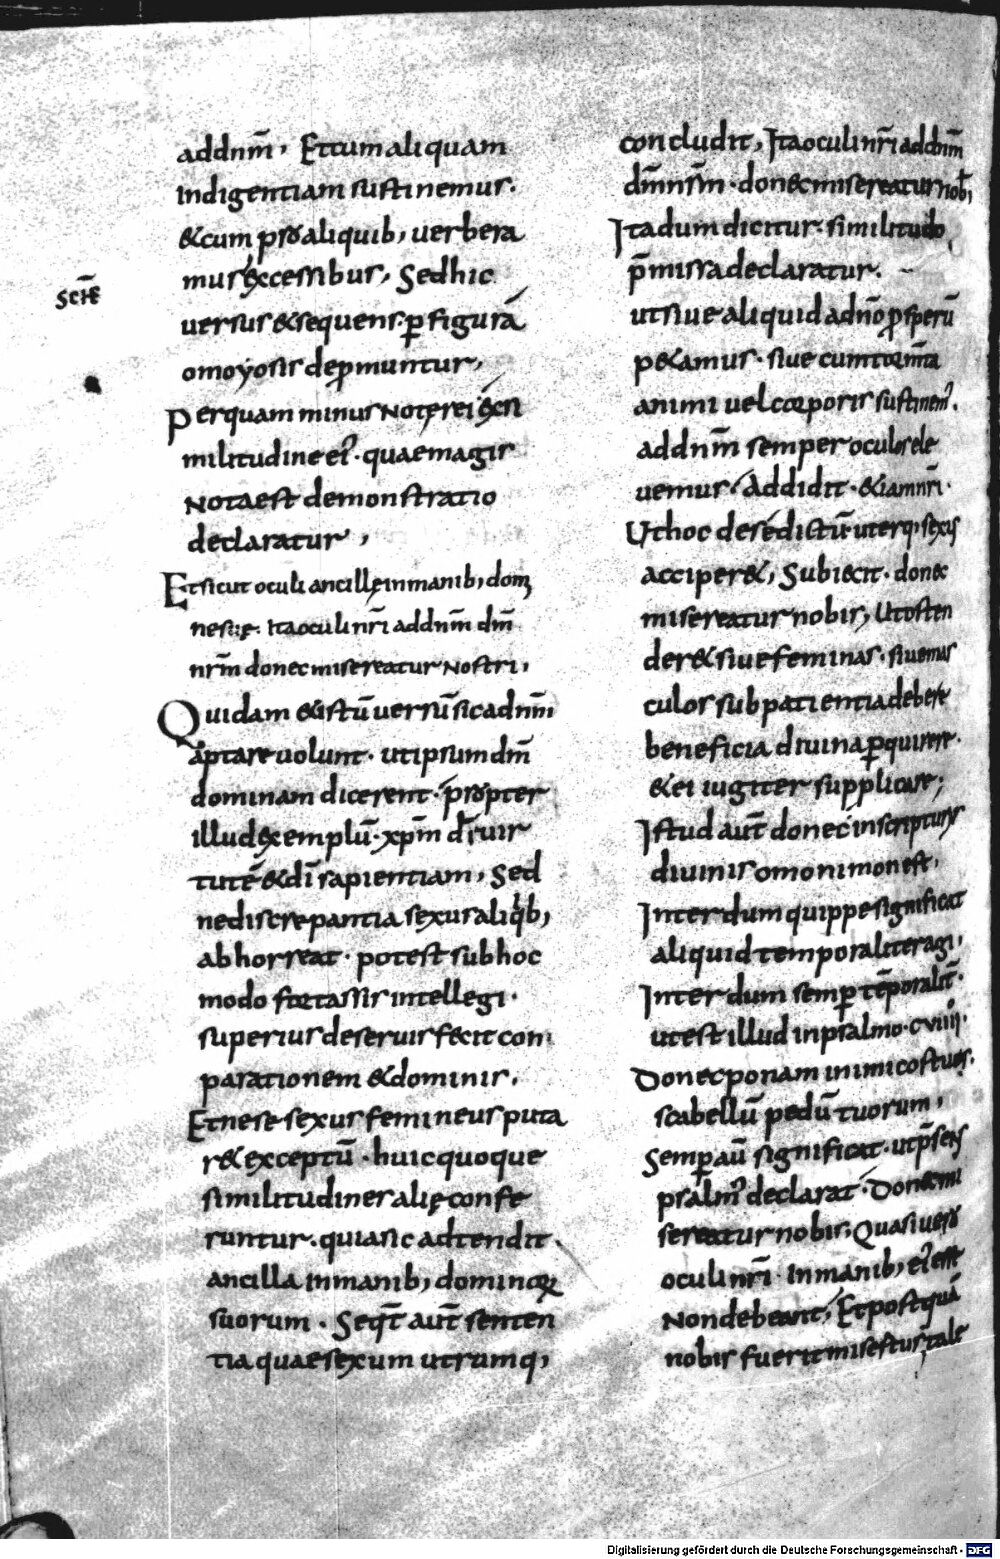 addnm̄, Et cum aliquam
Indigentiam sustinemus.
&cum pro aliquib; verbera
mur excessibus, Sed hic
scħē
versus & sequens. p̱ figurā
omoyosis dep̱muntur,
Per quam minus Notę rei ex si
militudine ei᾽. quae magis
Nota est demonstratio
declaratur,
Et sicut oculi ancillę in manib; dom
nę suę. Ita oculi nr̄i addnm̄ dm̄
nrm̄ donec misereatur Nostri,
Quidam & istū versū sic adnm̄
aptare volunt. ut ipsum dm̄
dominam dicerent. propter
illud exemplū. xpm̄ dī vir
tutē & dī sapientiam, Sed
ne discrepantia sexus aliqib;
abhorreat. potest sub hoc
modo fortassis intellegi.
superius de servis fecit con
parationem & dominis.
Et ne se sexus femineus puta
r& exceptū. huic quoque
similitudines alię confe
runtur. quia sic adtendit.
ancilla in manib; dominorꝝ
suorum. Seqt̄ aut̄ senten
tia quae sexum utrumq;
concludit, Ita oculi nr̄i addnm̄
dm̄ nsm̄. donec misereatur nob̄,
Ita dum dicitur. similitudo
p̄missa declaratur.
ut sive aliquid adnō p̱sperū
p&amus. sive cum tormta
animi vel corporis sustinem᾽.
addnm̄ semper oculos ele
vemus. Addidit. &iam nr̄i.
Ut hoc de se dictū uterq; sexus
acciper&, Subiecit. donec
misereatur nobis, Ut osten
der& sive feminas. sive mas
culos sub patientia debere
beneficia divina p̱quirere.
& ei iugiter supplicare;
Istud aut̄ donec in scripturis
divinis omonimon est,
Interdum quippe significat
aliquid temporaliter agi,
Interdum semp̱ tēporalit̄.
ut est illud in psalmo. cviiii.
Donec ponam inimicos tuos.
scabellū pedū tuorum,
Semp̱ aū significat. ut p̄sens
psalm᾽ declarat. Donec mi
sereatur nobis, Quasi vero
oculi nr̄i. In manib; ei᾽ esse
Non debeant, Et postquā
nobis fuerit misertus, tale